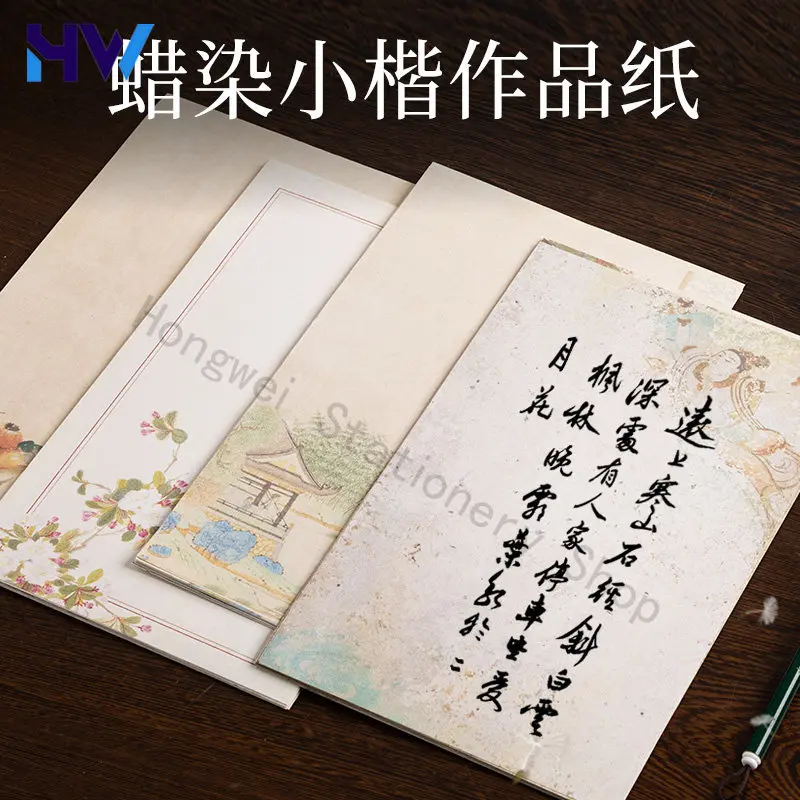 HW
蜡染小楷作品纸
遠上寒山石徑斜白雲
深處有人家停車坐愛
楓林晚霜葉紅於二
月花
Hongwei Stationery Shop